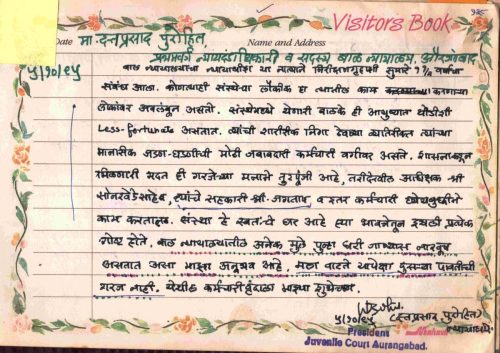 Visitors Book
Date मा. दत्तप्रसाद पुरोहित,
Name and Address
प्रथमवर्ग न्यायदंडाधिकारी व सदस्य बाल न्यायालय, औरंगाबाद
५/१०/९५ बाल न्यायालयाचा न्यायाधीश या नात्याने निरीक्षणगृहाशी सुमारे १ १/२ वर्षाचा
संबंध आला. कोणत्याही संस्थेचा लौकीक हा त्यातील काम करणाऱ्या
लोकांवर अवलंबून असतो. संस्थेमध्ये येणारी बालके ही आयुष्यात थोडीशी
less-fortunate असतात. त्यांची शारीरिक निगा ठेवण्या व्यतिरीक्त त्यांच्या
मानसिक जडण-घडणीची मोठी जबाबदारी कर्मचारी वर्गावर असते. शासनाकडून
मिळणारी मदत ही गरजेच्या मनाने तुटपूंजी आहे, तरीदेखील अधिक्षक श्री
सोनखेडेसाहेब, त्यांचे सहकारी श्री. जगताप व इतर कर्मचारी ध्येयबुध्दीने
काम करतात. संस्था हे स्वतःचे घर आहे ह्या भावनेतून इथली प्रत्येक
गोष्ट होते. बाल न्यायालयातील अनेक मुले पुन्हा घरी जाण्यास नाखूष
असतात असा माझा अनुभव आहे. मला वाटते यापेक्षा दुसऱ्या पावतीची
गरज नाही. येथील कर्मचारीवृंदाला माझ्या शुभेच्छा.
५/१०/९५ (दत्तप्रसाद पुरोहित)
President न्यायाधीश
Juvenile Court Aurangabad.